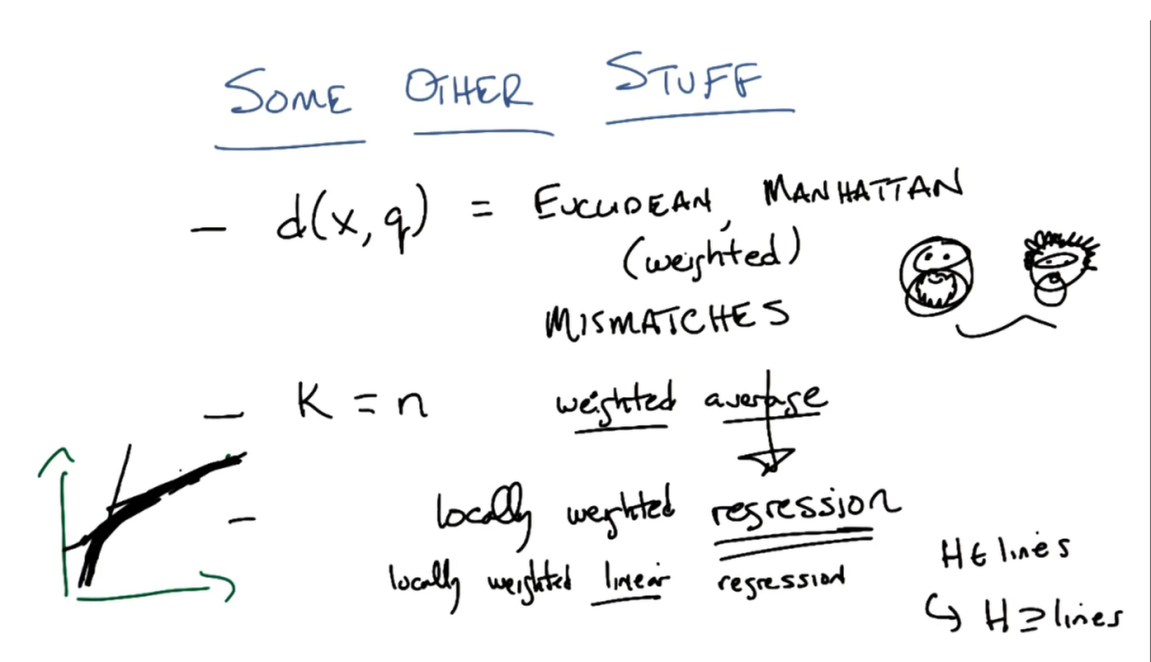 SOME OTHER STUFF
– d(x, q) = EUCLIDEAN, MANHATTAN
(weighted)
MISMATCHES
– K = n weighted average
– locally weighted regression
locally weighted linear regression
H ∈ lines
↳ H ⊇ lines